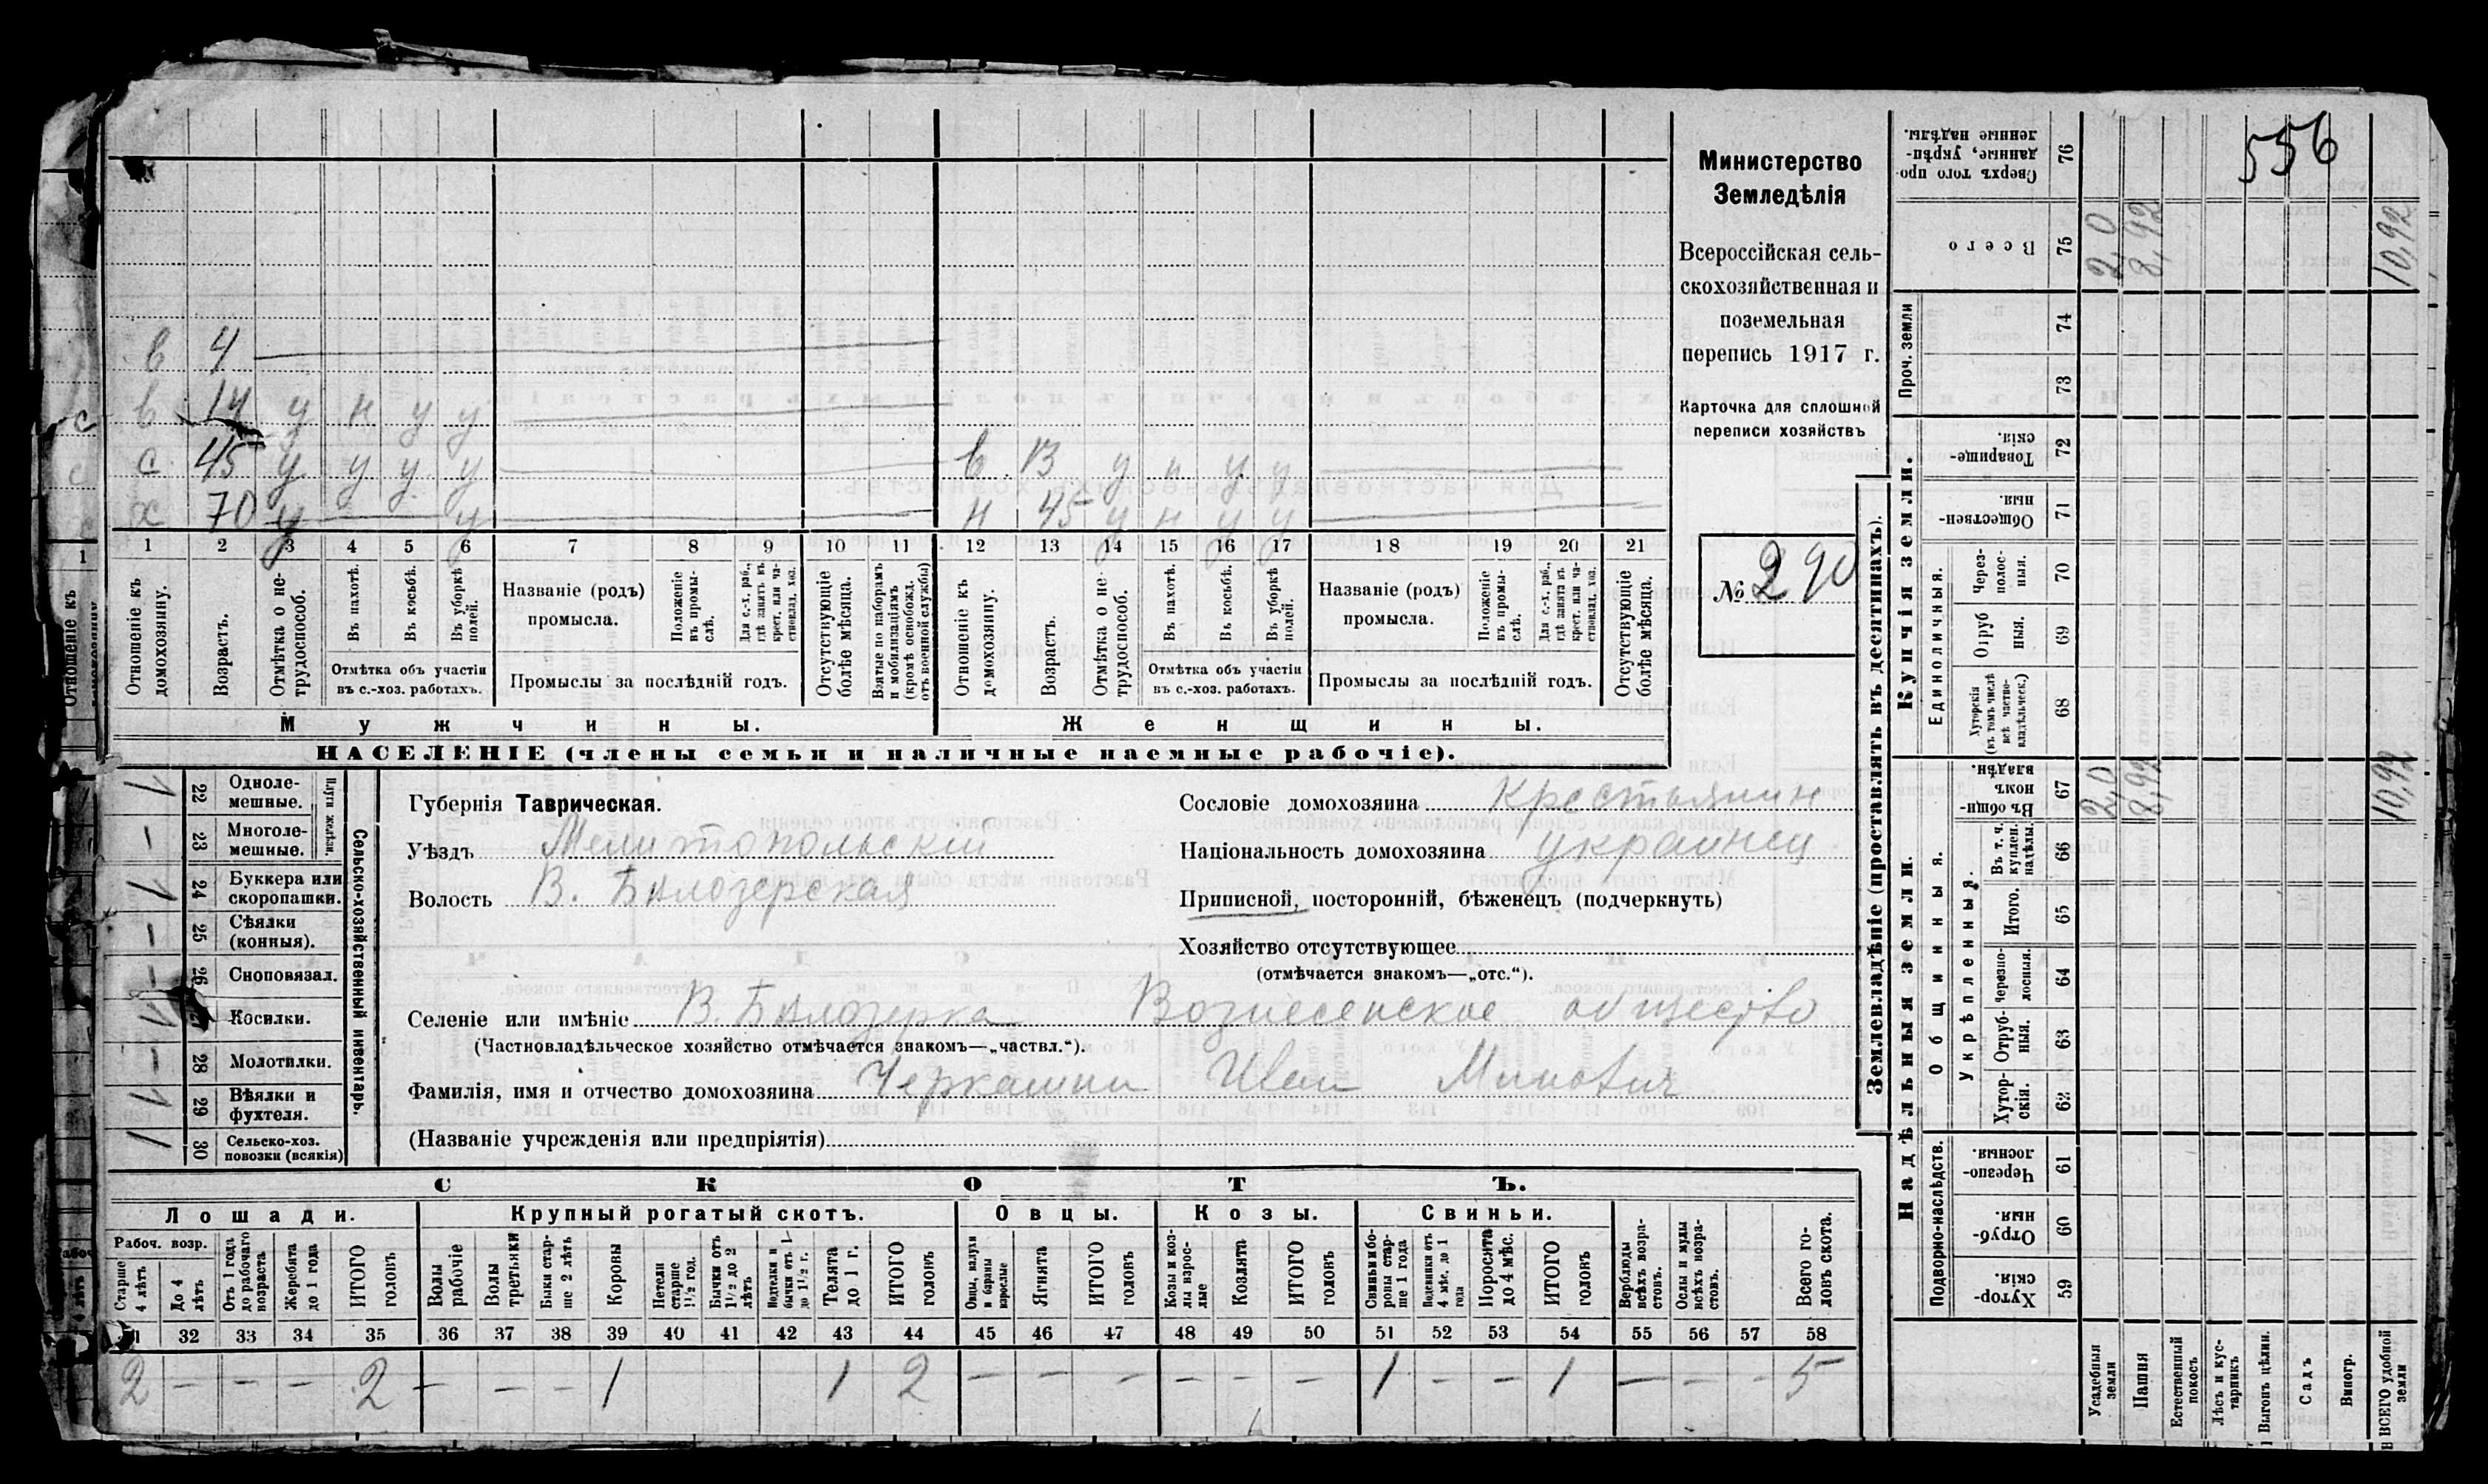 556
Министерство
Земледѣлія
Всероссійская сель-
скохозяйственная и
поземельная
перепись 1917 г.
Карточка для сплошной
переписи хозяйствъ
№ 290
в 4
в 14 у н у у
с 45 у у у у в 13 у н у у
х 70 у у н 45 у н у у
1 2 3 4 5 6 7 8 9 10 11 12 13 14 15 16 17 18 19 20 21
Отношеніе къ домохозяину.
Возрастъ.
Отмѣтка о не-трудоспособ.
Въ пахотѣ.
Въ косьбѣ.
Въ уборкѣ полей.
Отмѣтка объ участіи
въ с.-хоз. работахъ.
Названіе (родъ)
промысла.
Положеніе въ промы-слѣ.
Для с.-х. раб., гдѣ занятъ въ крест. или ча-стновлад. хоз.
Промыслы за послѣдній годъ.
Отсутствующіе болѣе мѣсяца.
Взятые по наборамъ и мобилизаціямъ (кромѣ освобожд. отъ военной службы)
Отношеніе къ домохозяину.
Возрастъ.
Отмѣтка о не-трудоспособ.
Въ пахотѣ.
Въ косьбѣ.
Въ уборкѣ полей.
Отмѣтка объ участіи
въ с.-хоз. работахъ.
Названіе (родъ)
промысла.
Положеніе въ промы-слѣ.
Для с.-х. раб., гдѣ занята въ крест. или ча-стновлад. хоз.
Промыслы за послѣдній годъ.
Отсутствующіе болѣе мѣсяца.
Мужчины.
Женщины.
НАСЕЛЕНІЕ (члены семьи и наличные наемные рабочіе).
Сельско-хозяйственный инвентарь.
Плуги желѣзн.
22 Одноле-мешные. 1
23 Многоле-мешные. —
24 Буккера или скоропашки. 1
25 Сѣялки (конныя). —
26 Сноповязал. —
Косилки.
28 Молотилки. —
29 Вѣялки и фухтеля. 1
30 Сельско-хоз. повозки (всякія) 1
Губернія Таврическая.
Уѣздъ Мелитопольскій
Волость В. Бѣлозерская
Сословіе домохозяина Крестьянин
Національность домохозяина украинец
Приписной, посторонній, бѣженецъ (подчеркнуть)
Хозяйство отсутствующее
(отмѣчается знакомъ—„отс.“).
Селеніе или имѣніе В. Бѣлозерка Вознесенское общество
(Частновладѣльческое хозяйство отмѣчается знакомъ—„частвл.“).
Фамилія, имя и отчество домохозяина Черкашин Иван Минович
(Названіе учрежденія или предпріятія)
СКОТЪ.
Лошади. Крупный рогатый скотъ. Овцы. Козы. Свиньи.
Рабоч. возр.
Старше 4 лѣтъ
До 4 лѣтъ
Отъ 1 года до рабочаго возраста
Жеребята до 1 года
ИТОГО головъ
Волы рабочіе
Волы третьяки
Быки стар-ше 2 лѣтъ
Коровы
Нетели старше 1½ год.
Бычки отъ 1½ до 2 лѣтъ
Подтелки и бычки отъ 1-до 1½ г.
Телята до 1 г.
ИТОГО головъ
Овцы, валухи и бараны взрослые
Ягнята
ИТОГО головъ
Козы и коз-лы взрос-лые
Козлята
ИТОГО головъ
Свиньи и бо-ровы стар-ше 1 года
Подсвинки отъ 4 мѣс. до 1 года
Поросята до 4 мѣс.
ИТОГО головъ
Верблюды всѣхъ возра-стовъ.
Ослы и мулы всѣхъ возра-стовъ.
Всего го-ловъ скота.
32 33 34 35 36 37 38 39 40 41 42 43 44 45 46 47 48 49 50 51 52 53 54 55 56 57 58
2 — — — 2 — — — 1 1 2 — — — — — — 1 — — 1 — — — 5
Землевладѣніе (проставлять въ десятинахъ).
Купчія земли.
Надѣльныя земли.
Сверхъ того про-данные, укрѣп-ленные надѣлы. 76
Всего 75 2,0 8,92 10,92
Проч. земли 74 73
Товарище-скія. 72
Обществен-ныя. 71
Единоличныя.
Через-полос-ныя. 70
Отруб-ныя. 69
Хуторскія (въ томъ числѣ всѣ частно-владѣльческ.) 68
Общинныя.
Въ общин-номъ владѣн. 67 2,0 8,92 10,92
Укрѣпленныя.
Въ т. ч. куплен. надѣлы. 66
Итого. 65
Черезпо-лосныя. 64
Отруб-ныя. 63
Хутор-скія. 62
Подворно-наслѣдств.
Черезпо-лосныя. 61
Отруб-ныя. 60
Хутор-скія. 59
Усадебныя земли
Пашня
Естественный покосъ
Лѣсъ и кус-тарникъ
Выгонъ цѣлин.
Садъ
Виногр.
ВСЕГО удобной земли